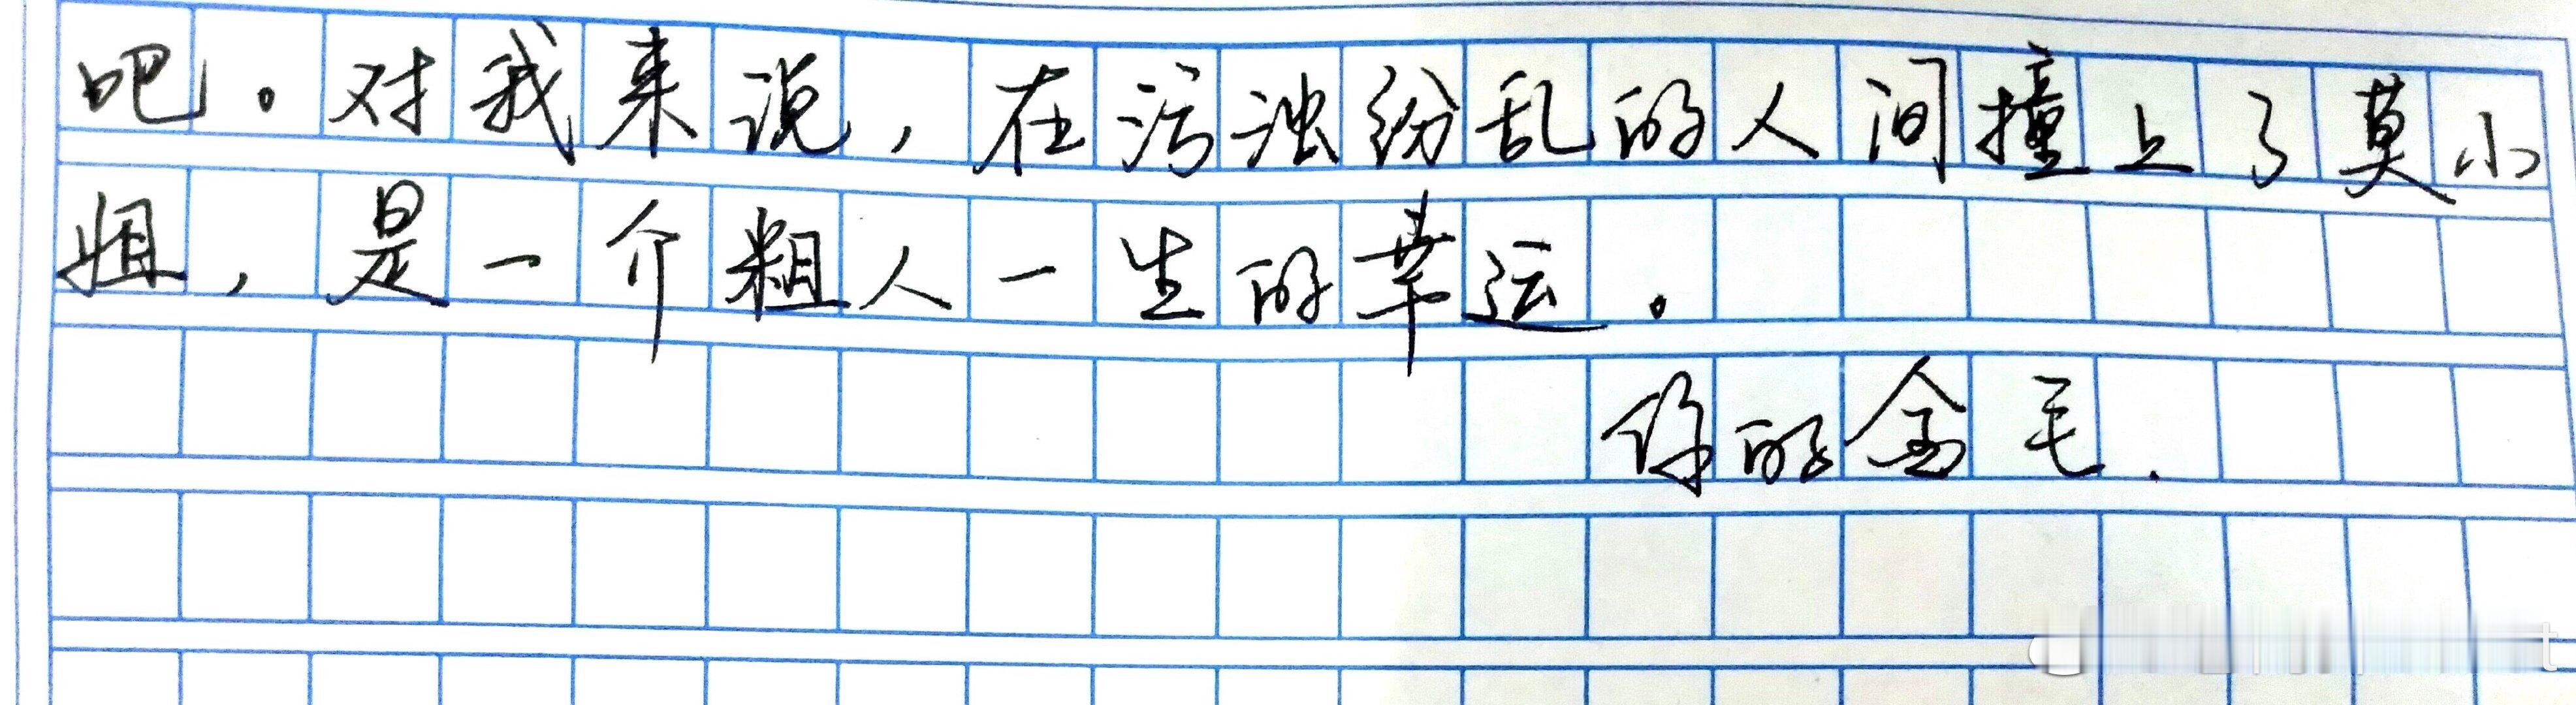 吧。对我来说，在污浊纷乱的人间撞上了莫小
姐，是一介粗人一生的幸运。
你的金毛.